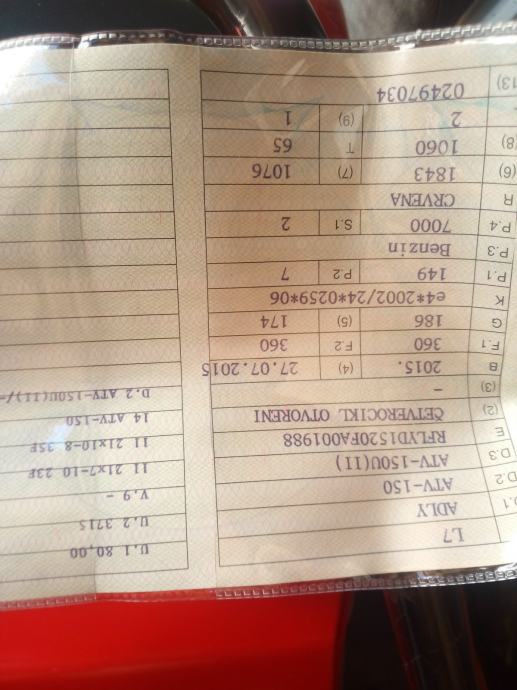 L7
D.1 ADLY
D.2 ATV-150
D.3 ATV-150U(II)
E RFLYD1520FA001988
(2) ČETVEROCIKL OTVORENI
(3) -
B 2015. (4) 27.07.2015
F.1 360 F.2 360
G 186 (5) 174
K e4*2002/24*0259*06
P.1 149 P.2 7
P.3 Benzin
P.4 7000 S.1 2
R CRVENA
(6) 1843 (7) 1076
(8) 1060 T 65
2 (9) 1
13) 02497034
U.1 80,00
U.2 3715
V.9 -
11 21x7-10 23F
11 21x10-8 35F
14 ATV-150
D.2 ATV-150U(II)/-/